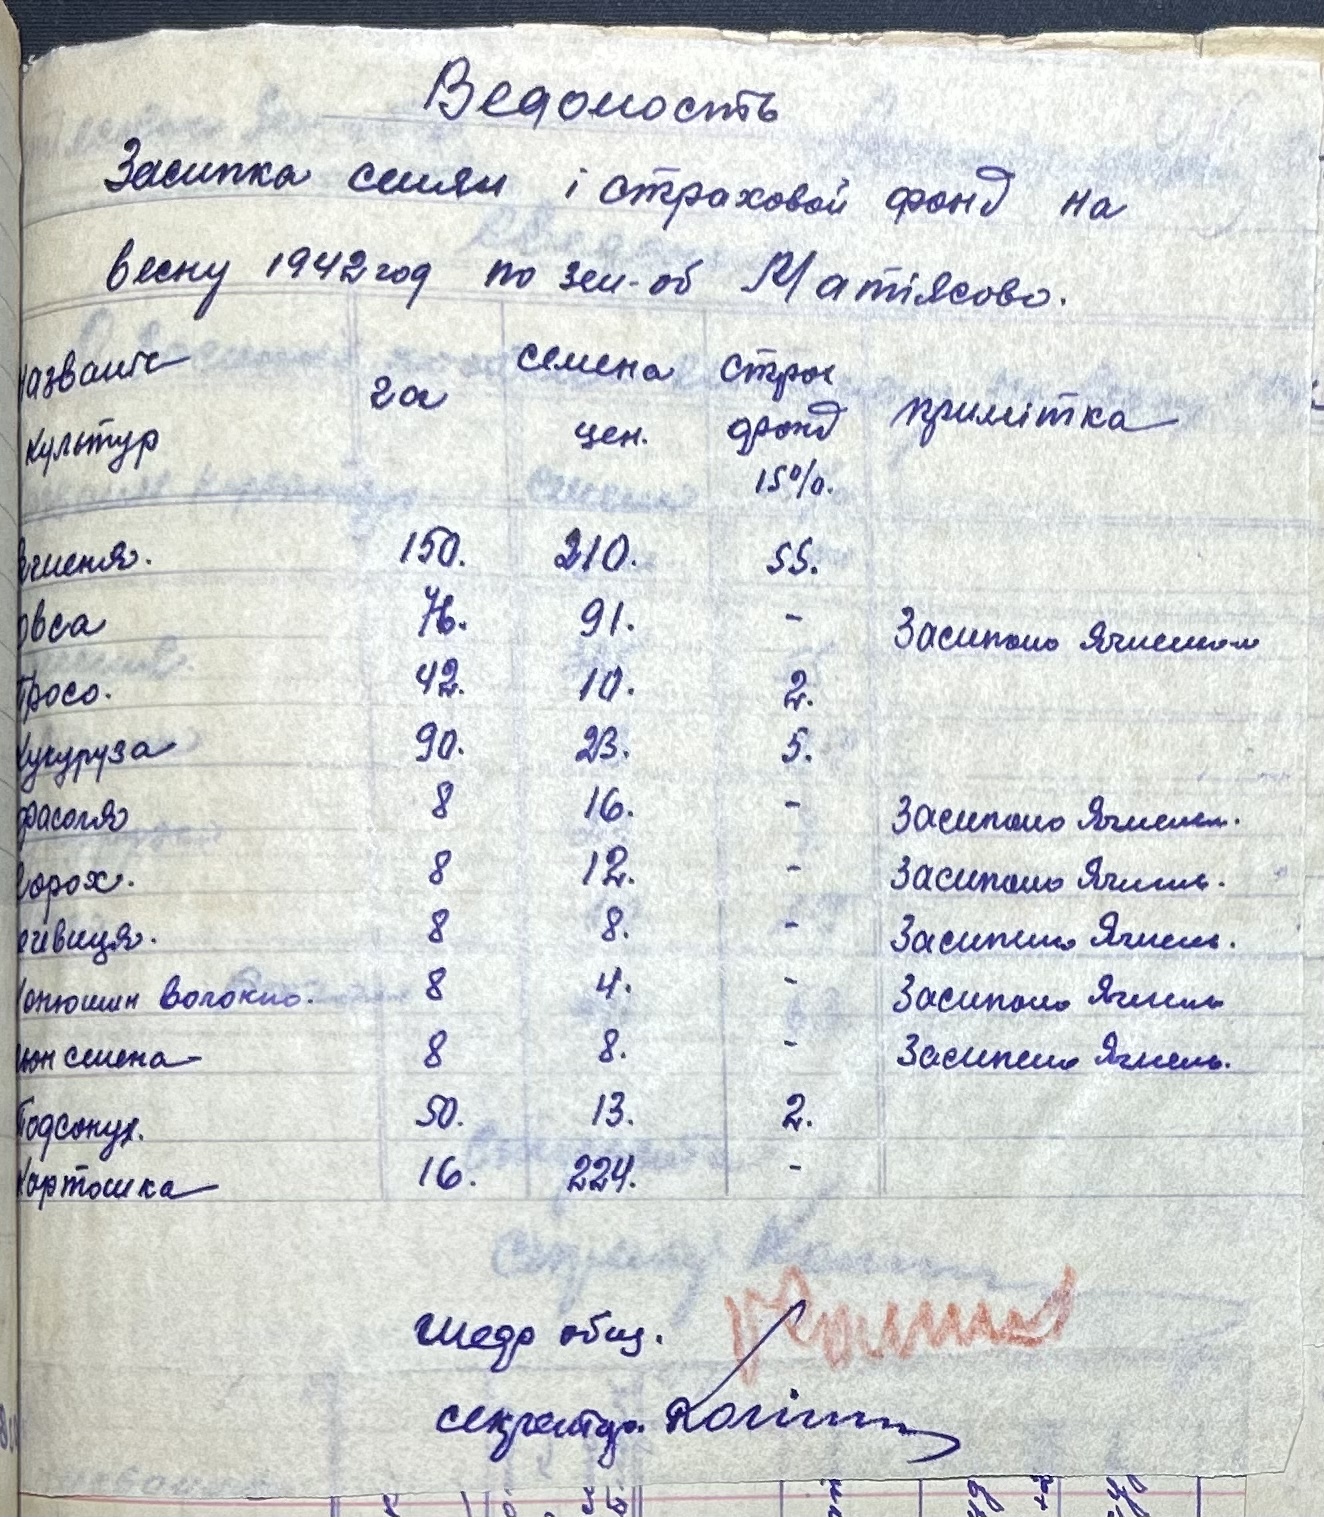 Ведомость
Засипка семян і страховой фонд на
весну 1942 год по зем-об Матіясово.
Названіе культур га семена цен. страх фонд 15%. примітка
Ячменя. 150. 210. 55.
Овса 76. 91. - Засипано Ячменем
Просо. 42. 10. 2.
Кукуруза 90. 23. 5.
Фасоля 8 16. - Засипано Ячмень.
Горох. 8 12. - Засипано Ячмень.
Чечвиця. 8 8. - Засипано Ячмень.
волокно. 8 4. - Засипано Ячмень
Льон семена 8 8. - Засипано Ячмень.
Подсонух. 50. 13. 2.
Картошка 16. 224. -
общ.
секретар.